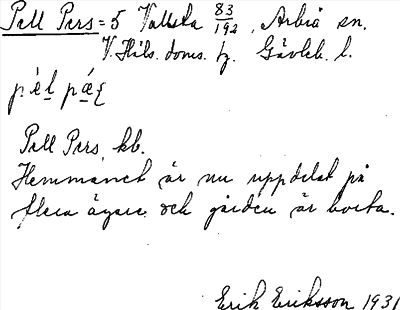 Pell Pers = 5 Vallsta 83/192, Arbrå sn.
V. Häls. doms. h. Gävleb. l.
Pell Pers kb.
Hemmanet är nu uppdelat på
flera ägare och gården är borta.
Erik Eriksson 1931